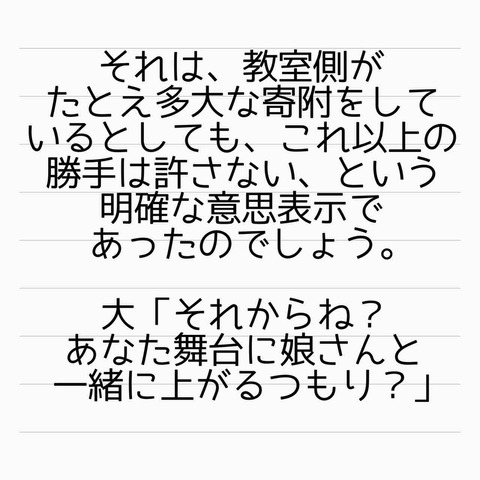 それは、教室側が
たとえ多大な寄附をして
いるとしても、これ以上の
勝手は許さない、という
明確な意思表示で
あったのでしょう。
大「それからね？
あなた舞台に娘さんと
一緒に上がるつもり？」